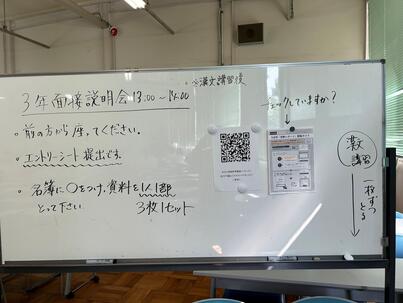 3年面接説明会 13:00~14:00
漢文講習後
・前の方から座ってください。
・エントリーシート提出です。
・名簿に○をつけ、資料を1人1部
とって下さい
3枚1セット
チェックしていますか?
漢文
講習
一枚ずつとる